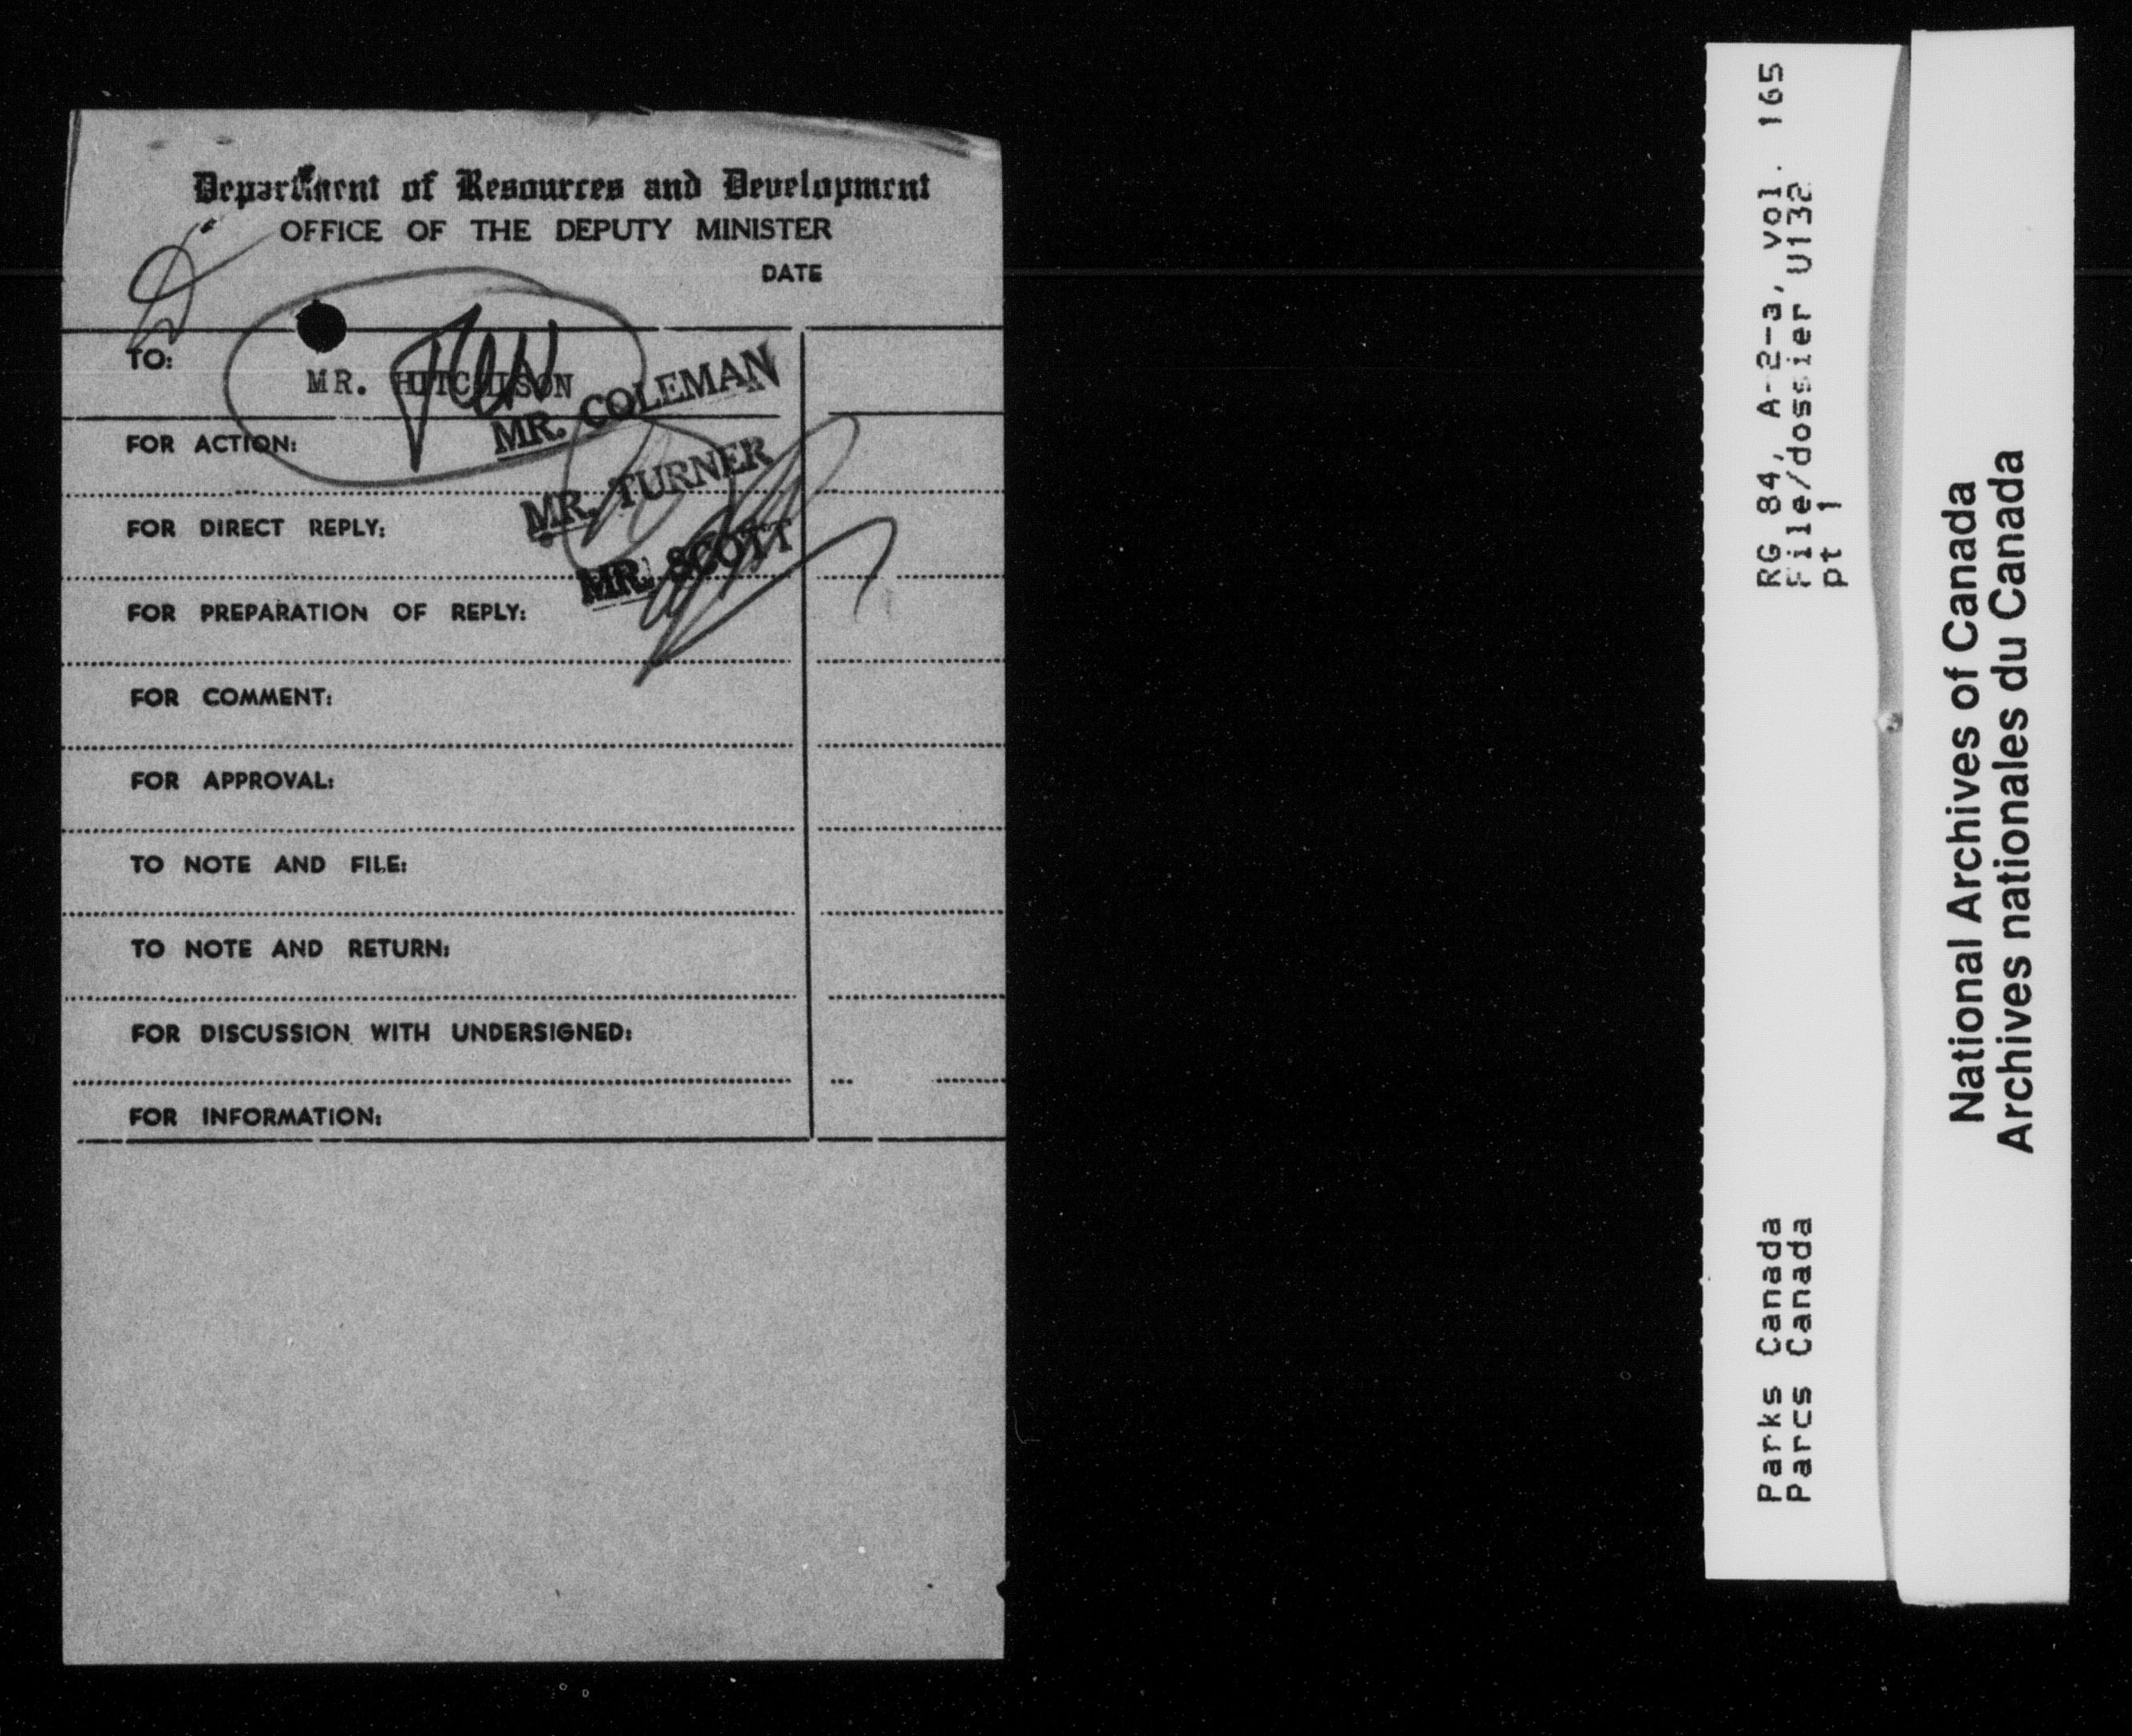 Department of Resources and Development
OFFICE OF THE DEPUTY MINISTER
DATE
TO:
MR. HUTCHISON
MR. COLEMAN
FOR ACTION:
MR. TURNER
FOR DIRECT REPLY:
MR. SCOTT
FOR PREPARATION OF REPLY:
FOR COMMENT:
FOR APPROVAL:
TO NOTE AND FILE:
TO NOTE AND RETURN:
FOR DISCUSSION WITH UNDERSIGNED:
FOR INFORMATION:
Parks Canada
Parcs Canada
RG 84, A-2-a, vol. 165
File/dossier U132
pt 1
National Archives of Canada
Archives nationales du Canada